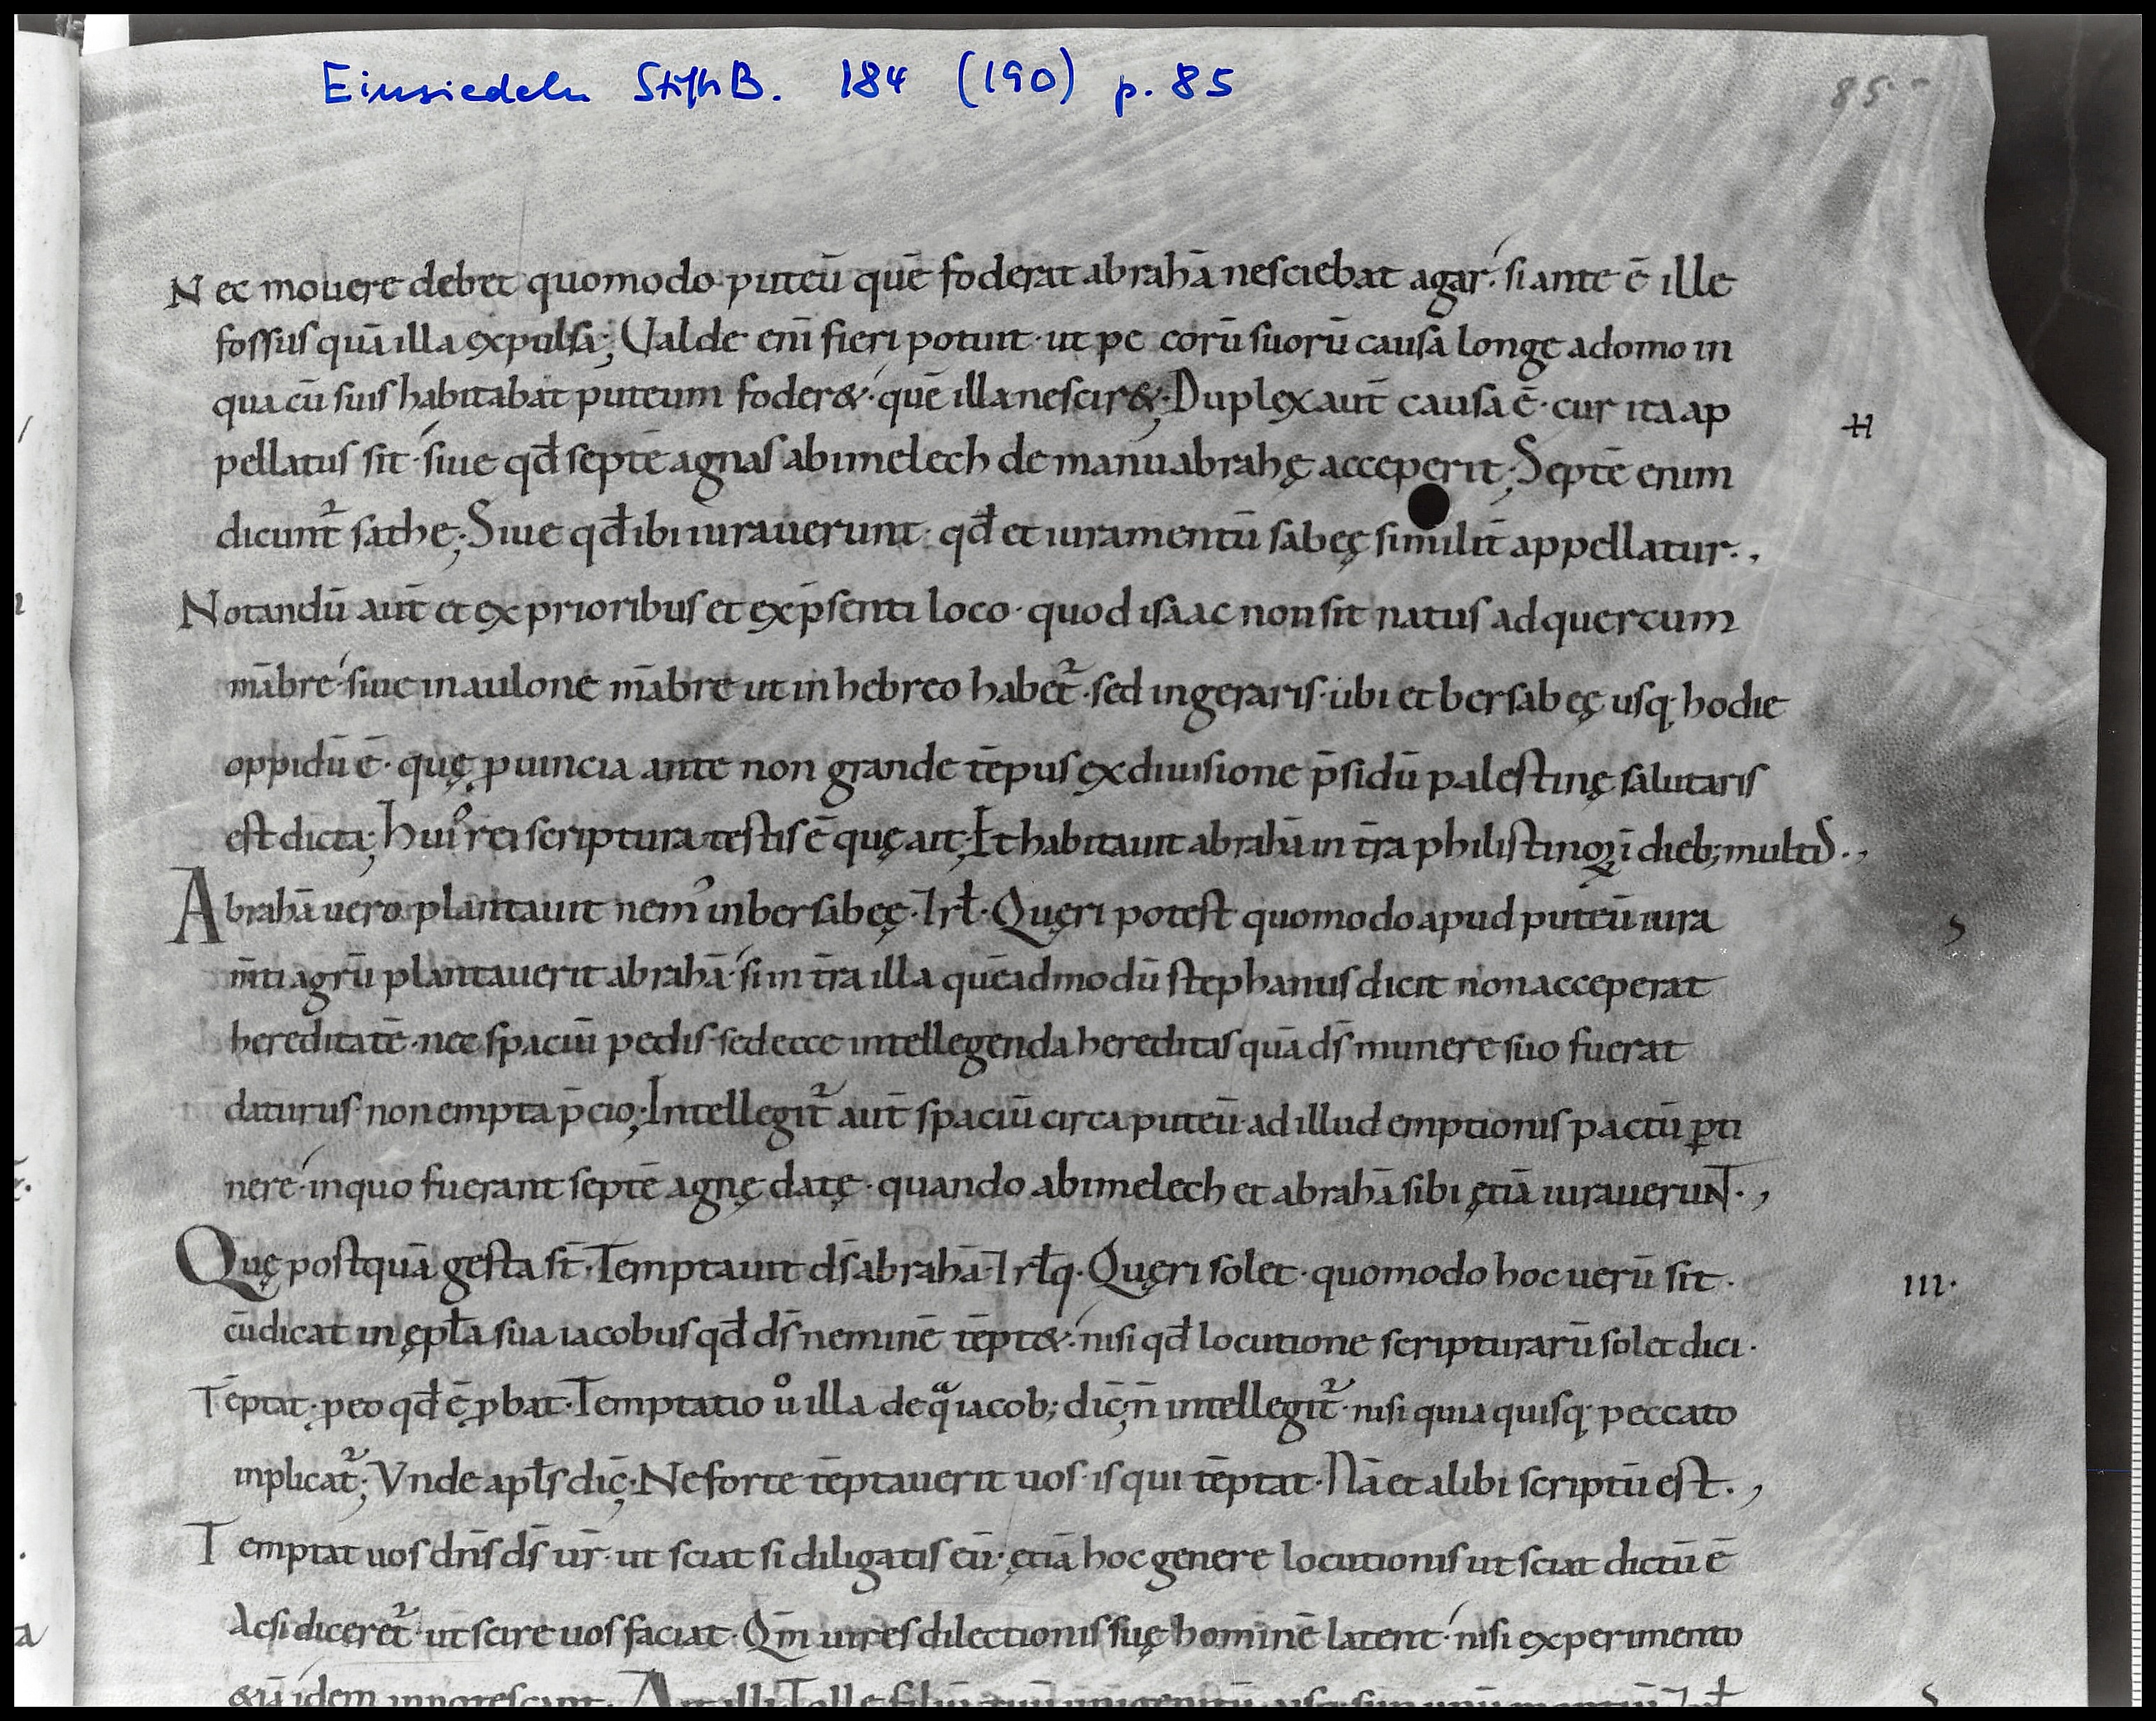 Einsiedeln StiftB. 184 (190) p. 85
85
Nec mouere debet quomodo puteū quē foderat abrahā nesciebat agar· si ante ē ille
fossus quā illa expulsa; Ualde eni̅ fieri potuit· ut pe corū suorū causa longe a domo in
qua cū suis habitabat puteum foder&· quē illa nescir&; Duplex aut̄ causa ē· cur ita ap
pellatus sit· siue qđ septē agnas abimelech de manu abrahę acceperit; Septē enim
dicunt᷑ sathe; Siue qđ ibi iurauerunt· qđ et iuramentū sabeę similit̄ appellatur·,
Notandū aut̄ et ex prioribus et ex p̄senti loco· quod isaac non sit natus ad quercum
mābre· siue in aulone mābre ut in hebreo habet᷑· sed in geraris· ubi et bersabeę usq· hodie
oppidū ē· quę ꝓuincia ante non grande tēpus ex diuisione p̄sidū palestinę salutaris
est dicta; Huiꝰ rei scriptura testis ē quę ait; Et habitauit abrahā in t̄ra philistinoꝝ ī dieb; multis·,
Abrahā uero plantauit nemꝰ in bersabeę· Irł· Quęri potest quomodo apud puteū iura
m̄ti agrū plantauerit abrahā· si in t̄ra illa quēadmodū stephanus dicit non acceperat
hereditatē· nec spaciū pedis· sed ecce intellegenda hereditas quā d̄s munere suo fuerat
daturus· non empta p̄cio; Intellegit᷑ aut̄ spaciū circa puteū· ad illud emptionis pactū ꝑti
nere· in quo fuerant septē agnę datę· quando abimelech et abrahā sibi ętiā iurauerunt·,
Quę postquā gesta st̄· Temptauit d̄s abrahā· Irłq· Quęri solet· quomodo hoc uerū sit·
cū dicat in ępła sua iacobus qđ d̄s neminē tēpt&· nisi qđ locutione scripturarū solet dici·
Tēptat· ꝓ eo qđ ē ꝓbat· Temptatio uͦ illa de qͣ iacob; dic̄· n̄ intellegit᷑· nisi quia quisq· peccato
inplicat᷑; Vnde apłs dic̄; Ne forte tēptauerit uos· is qui tēptat· Nā et alibi scriptū est·,
Temptat uos dn̄s d̄s ur̄· ut sciat si diligatis eū· ętiā hoc genere locutionis ut sciat dictū ē
Ac si diceret᷑· ut scire uos faciat· Qm̄ uires dilectionis suę hominē latent· nisi experimento
III·